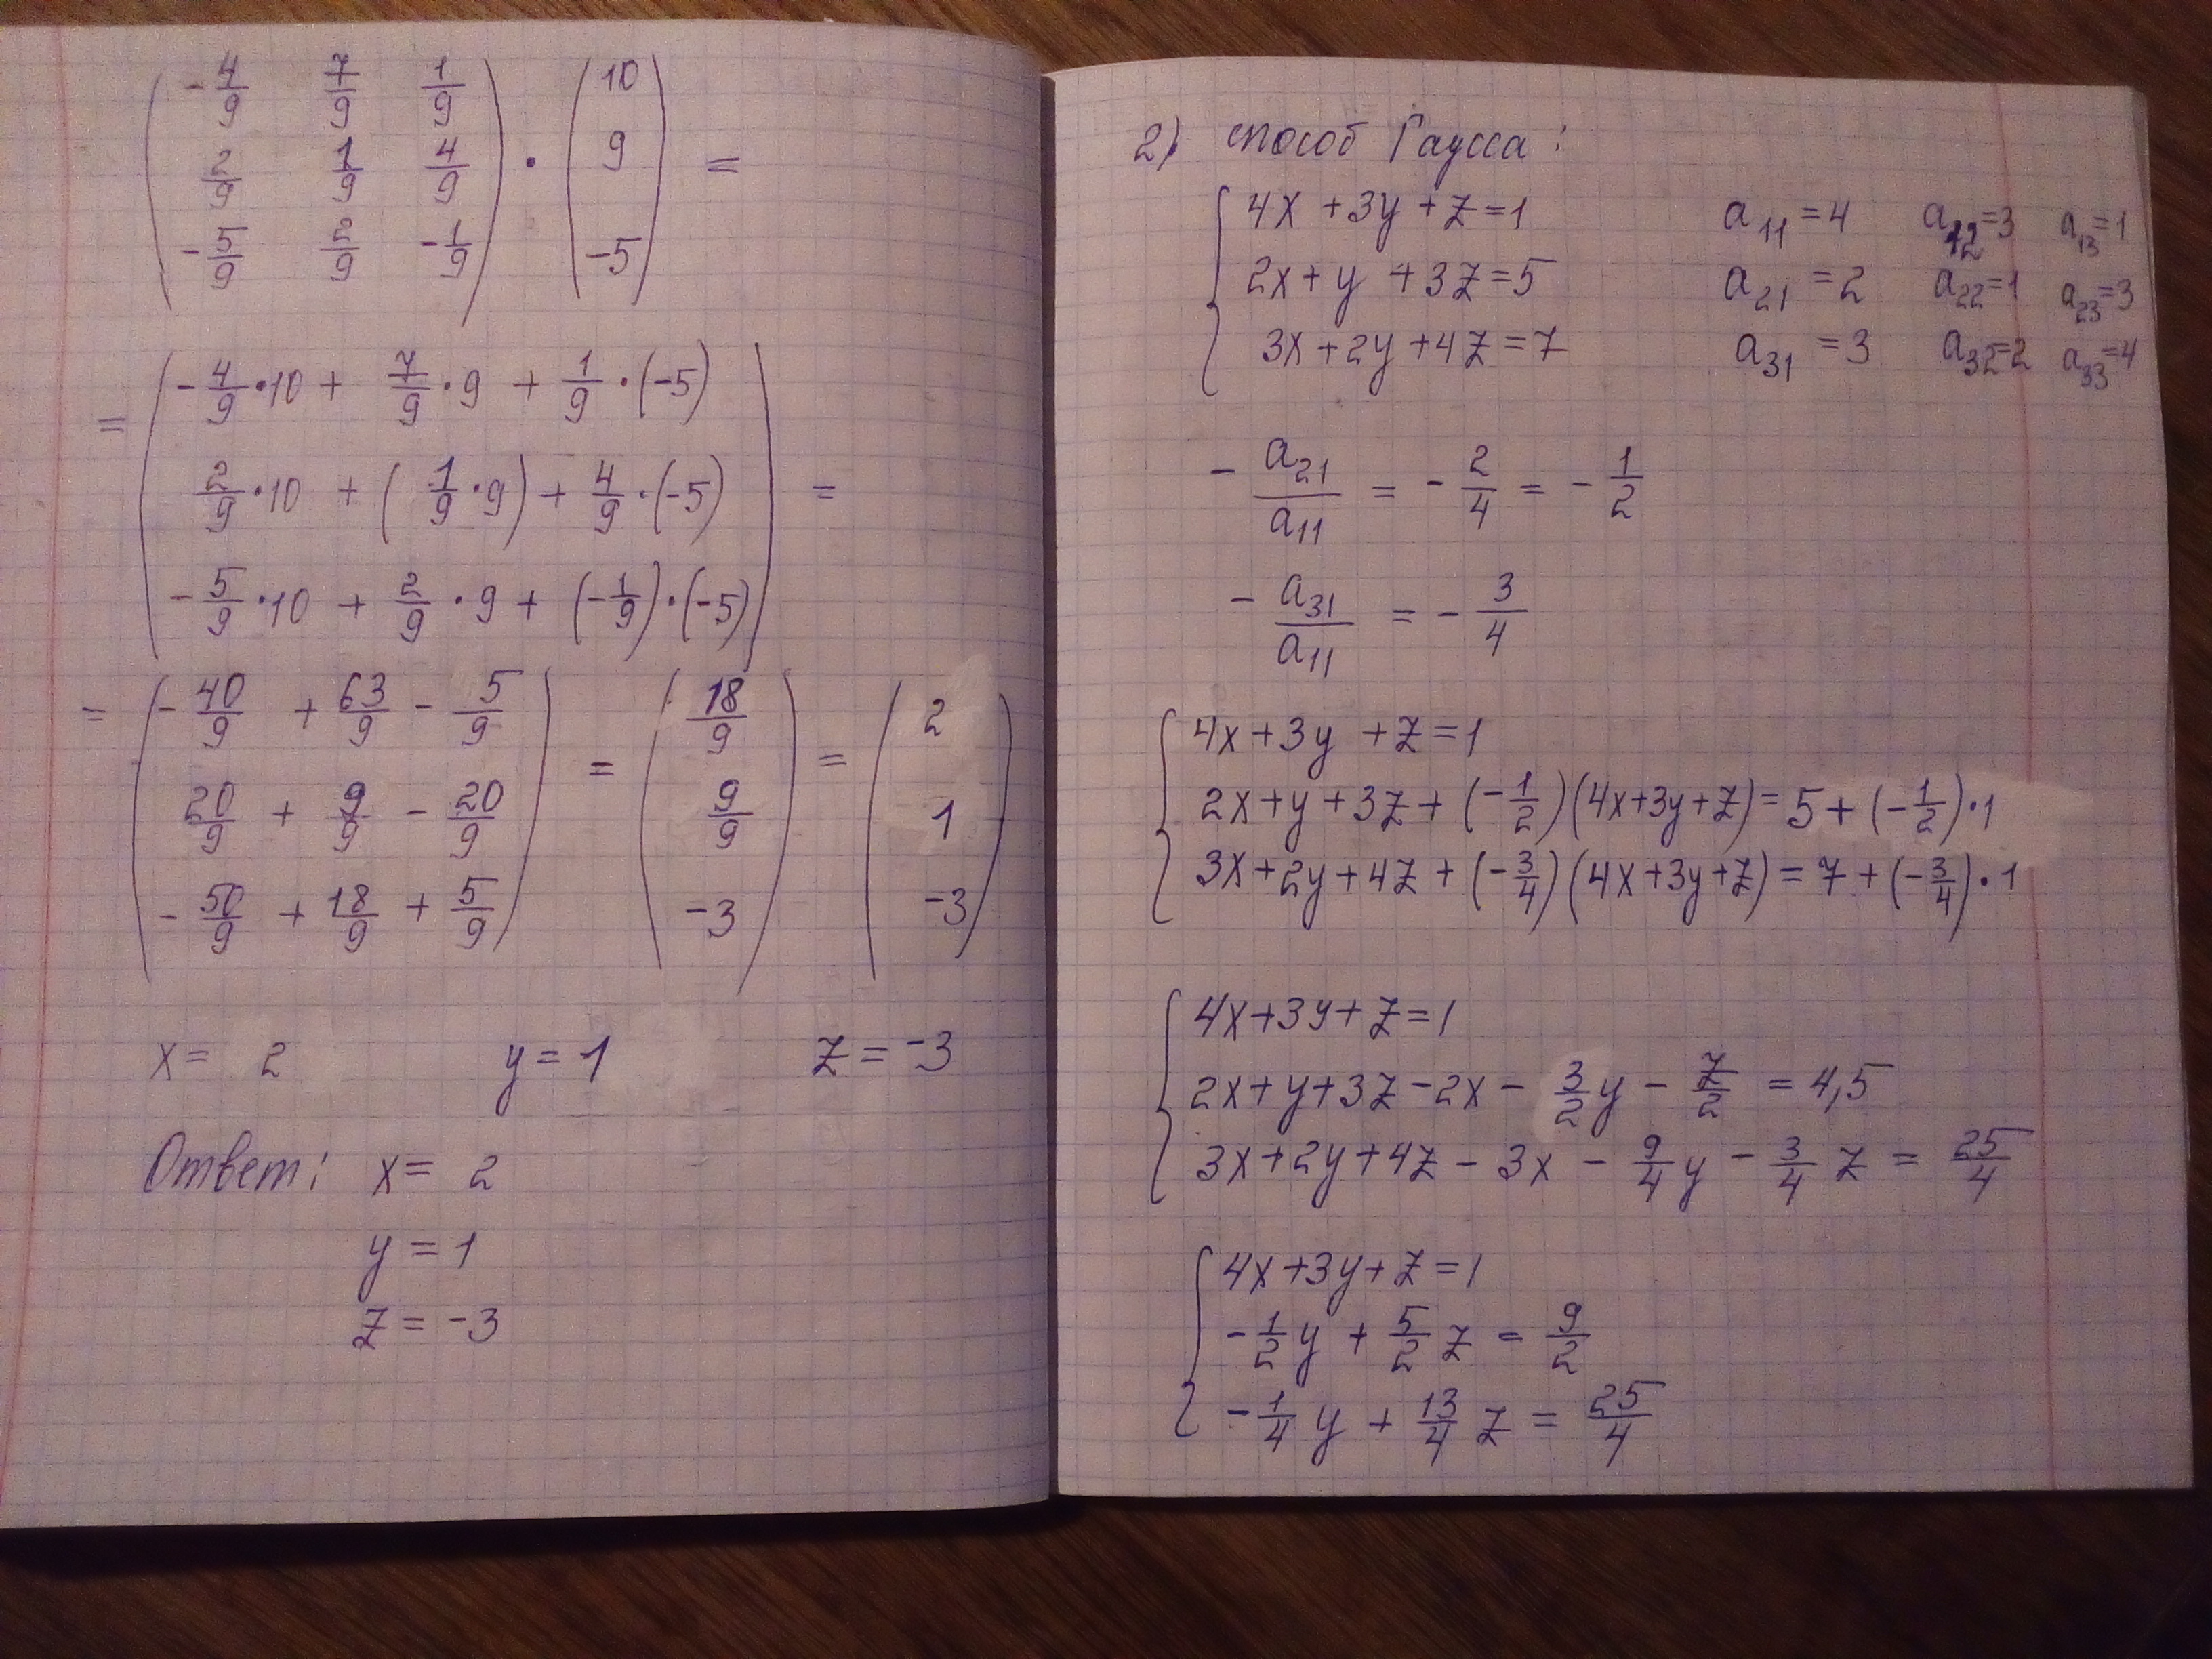 (-4/9 7/9 1/9) (10)
(2/9 1/9 4/9) · (9) =
(-5/9 2/9 -1/9) (-5)
= (-4/9·10 + 7/9·9 + 1/9·(-5))
(2/9·10 + (1/9·9) + 4/9·(-5)) =
(-5/9·10 + 2/9·9 + (-1/9)·(-5))
= (-40/9 + 63/9 - 5/9) (18/9) (2)
(20/9 + 9/9 - 20/9) = (9/9) = (1)
(-50/9 + 18/9 + 5/9) (-3) (-3)
x = 2 y = 1 z = -3
Ответ: x = 2
y = 1
z = -3
2) способ Гаусса:
{4x+3y+z=1 a11=4 a12=3 a13=1
2x+y+3z=5 a21=2 a22=1 a23=3
3x+2y+4z=7 a31=3 a32=2 a33=4
- a21/a11 = -2/4 = -1/2
- a31/a11 = -3/4
{4x+3y+z=1
2x+y+3z+(-1/2)(4x+3y+z)=5+(-1/2)·1
3x+2y+4z+(-3/4)(4x+3y+z)=7+(-3/4)·1
{4x+3y+z=1
2x+y+3z-2x-3/2y-z/2=4,5
3x+2y+4z-3x-9/4y-3/4z=25/4
{4x+3y+z=1
-1/2y+5/2z=9/2
-1/4y+13/4z=25/4